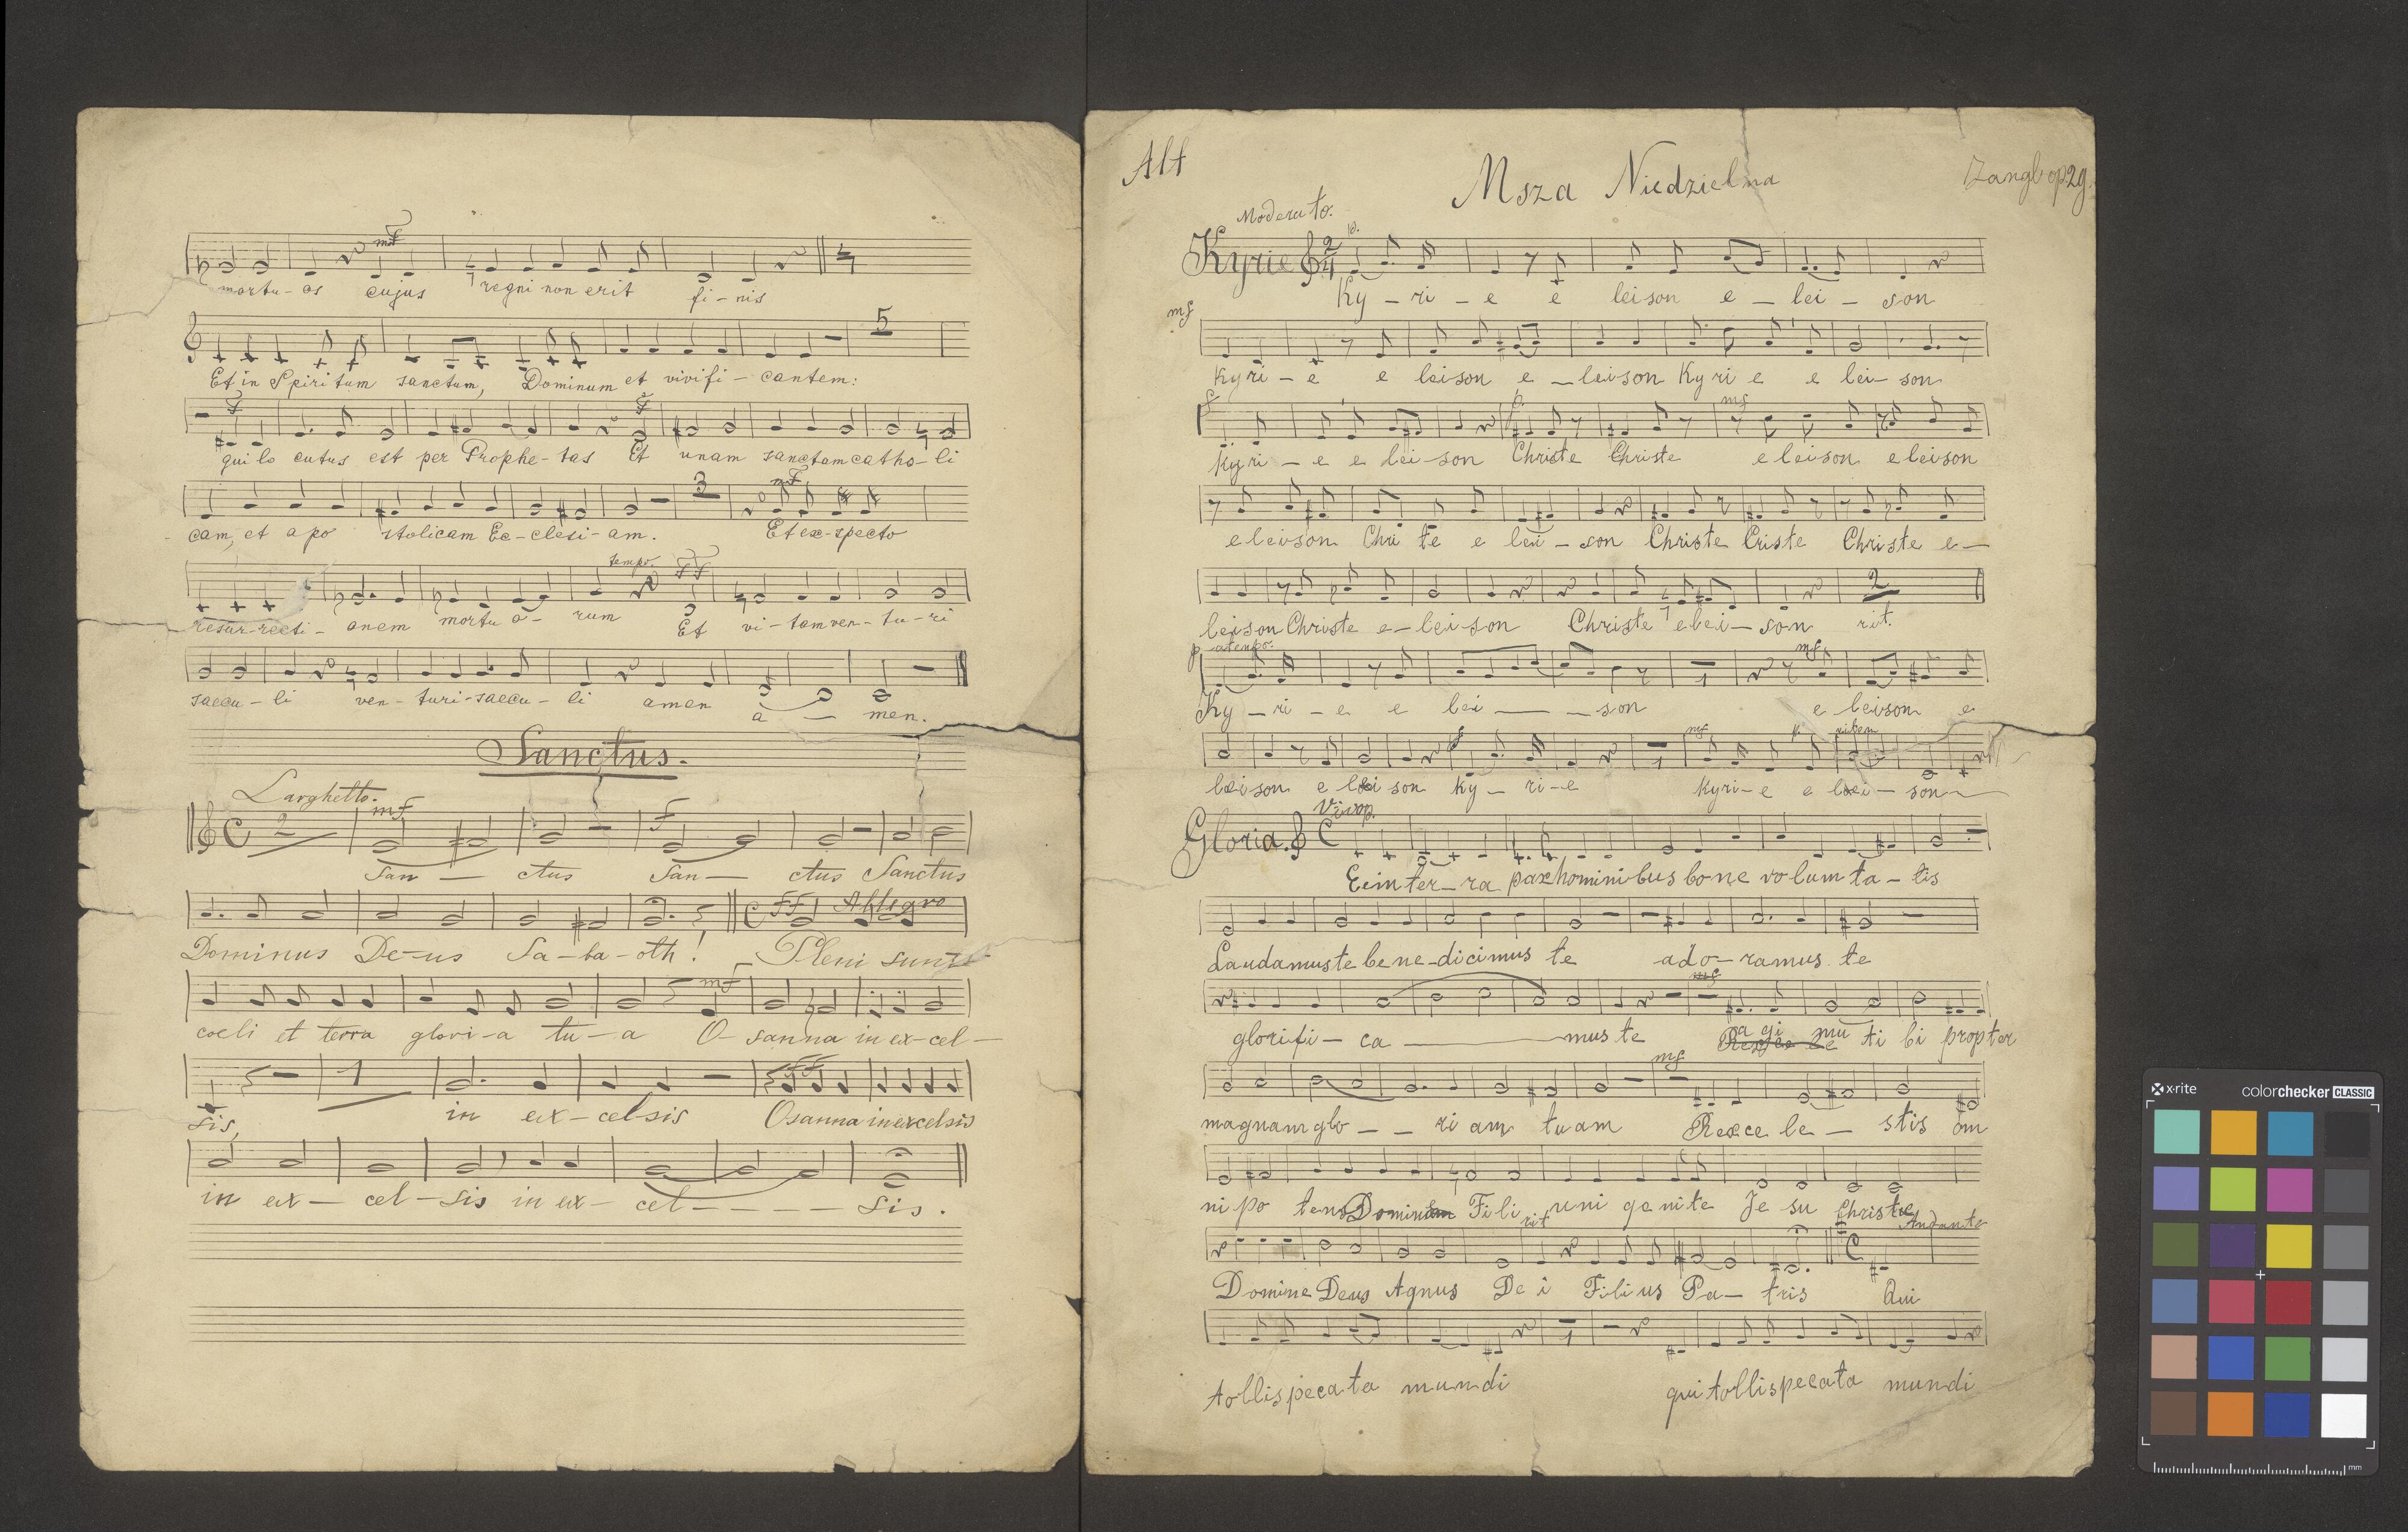 mf
mortu-os cujus regni non erit fi-nis
5
Et in Spiritum sanctum, Dominum et vivifi-cantem:
f f
qui lo cutus est per Prophe-tas Et unam sanctam catho-li
3 mf
cam, et apo stolicam Ec-clesi-am. Et ex-specto
tempo. ff
resur-recti-onem mortu o-rum Et vi-tam ven-tu-ri
saecu-li ven-turi-saecu-li amen a — men.
Sanctus.
Larghetto. mf f
2
San — ctus San — ctus Sanctus
ff Allegro
Dominus De-us Sa-ba-oth! Pleni sunt
mf
coeli et terra glori-a tu-a O-sanna in ex-cel-
1 ff
sis, in ex-celsis Osanna in excelsis
in ex- cel-sis in ex- cel - - - - sis.
Alt Msza Niedzielna Zangl op 29.
Moderato. p.
Kyrie 2/4
Ky - ri - e e leison e - lei - son
mf
Kyri - e e leison e - leison Kyri e e lei-son
f p. mf
Kyri - e e lei-son Christe Christe e leison e leison
e leison Chri te e lei-son Christe Criste Christe e-
2
leison Christe e-lei-son Christe e lei-son rit.
p atempo. mf
Ky - ri - e e lei — — son e leison e
mf p.
leison e lei son Ky - ri-e Kyri-e e lei-son
Vivo
Gloria. C
Ecin ter-ra pax homini bus bone volum ta-tis
Laudamuste bene-dicimus te ado-ramus te
mf
glorifi-ca — mus te Ra gi mu ti bi propter
mf
magnam glo - - ri am tuam Rex ce le - stis om
ni po tens Domin Fili uni genite Je su Christe
rit Andante
Domine Deus Agnus De i Filius Pa- tris Qui
tollispecata mundi qui tollispecata mundi
x-rite colorchecker CLASSIC
mm